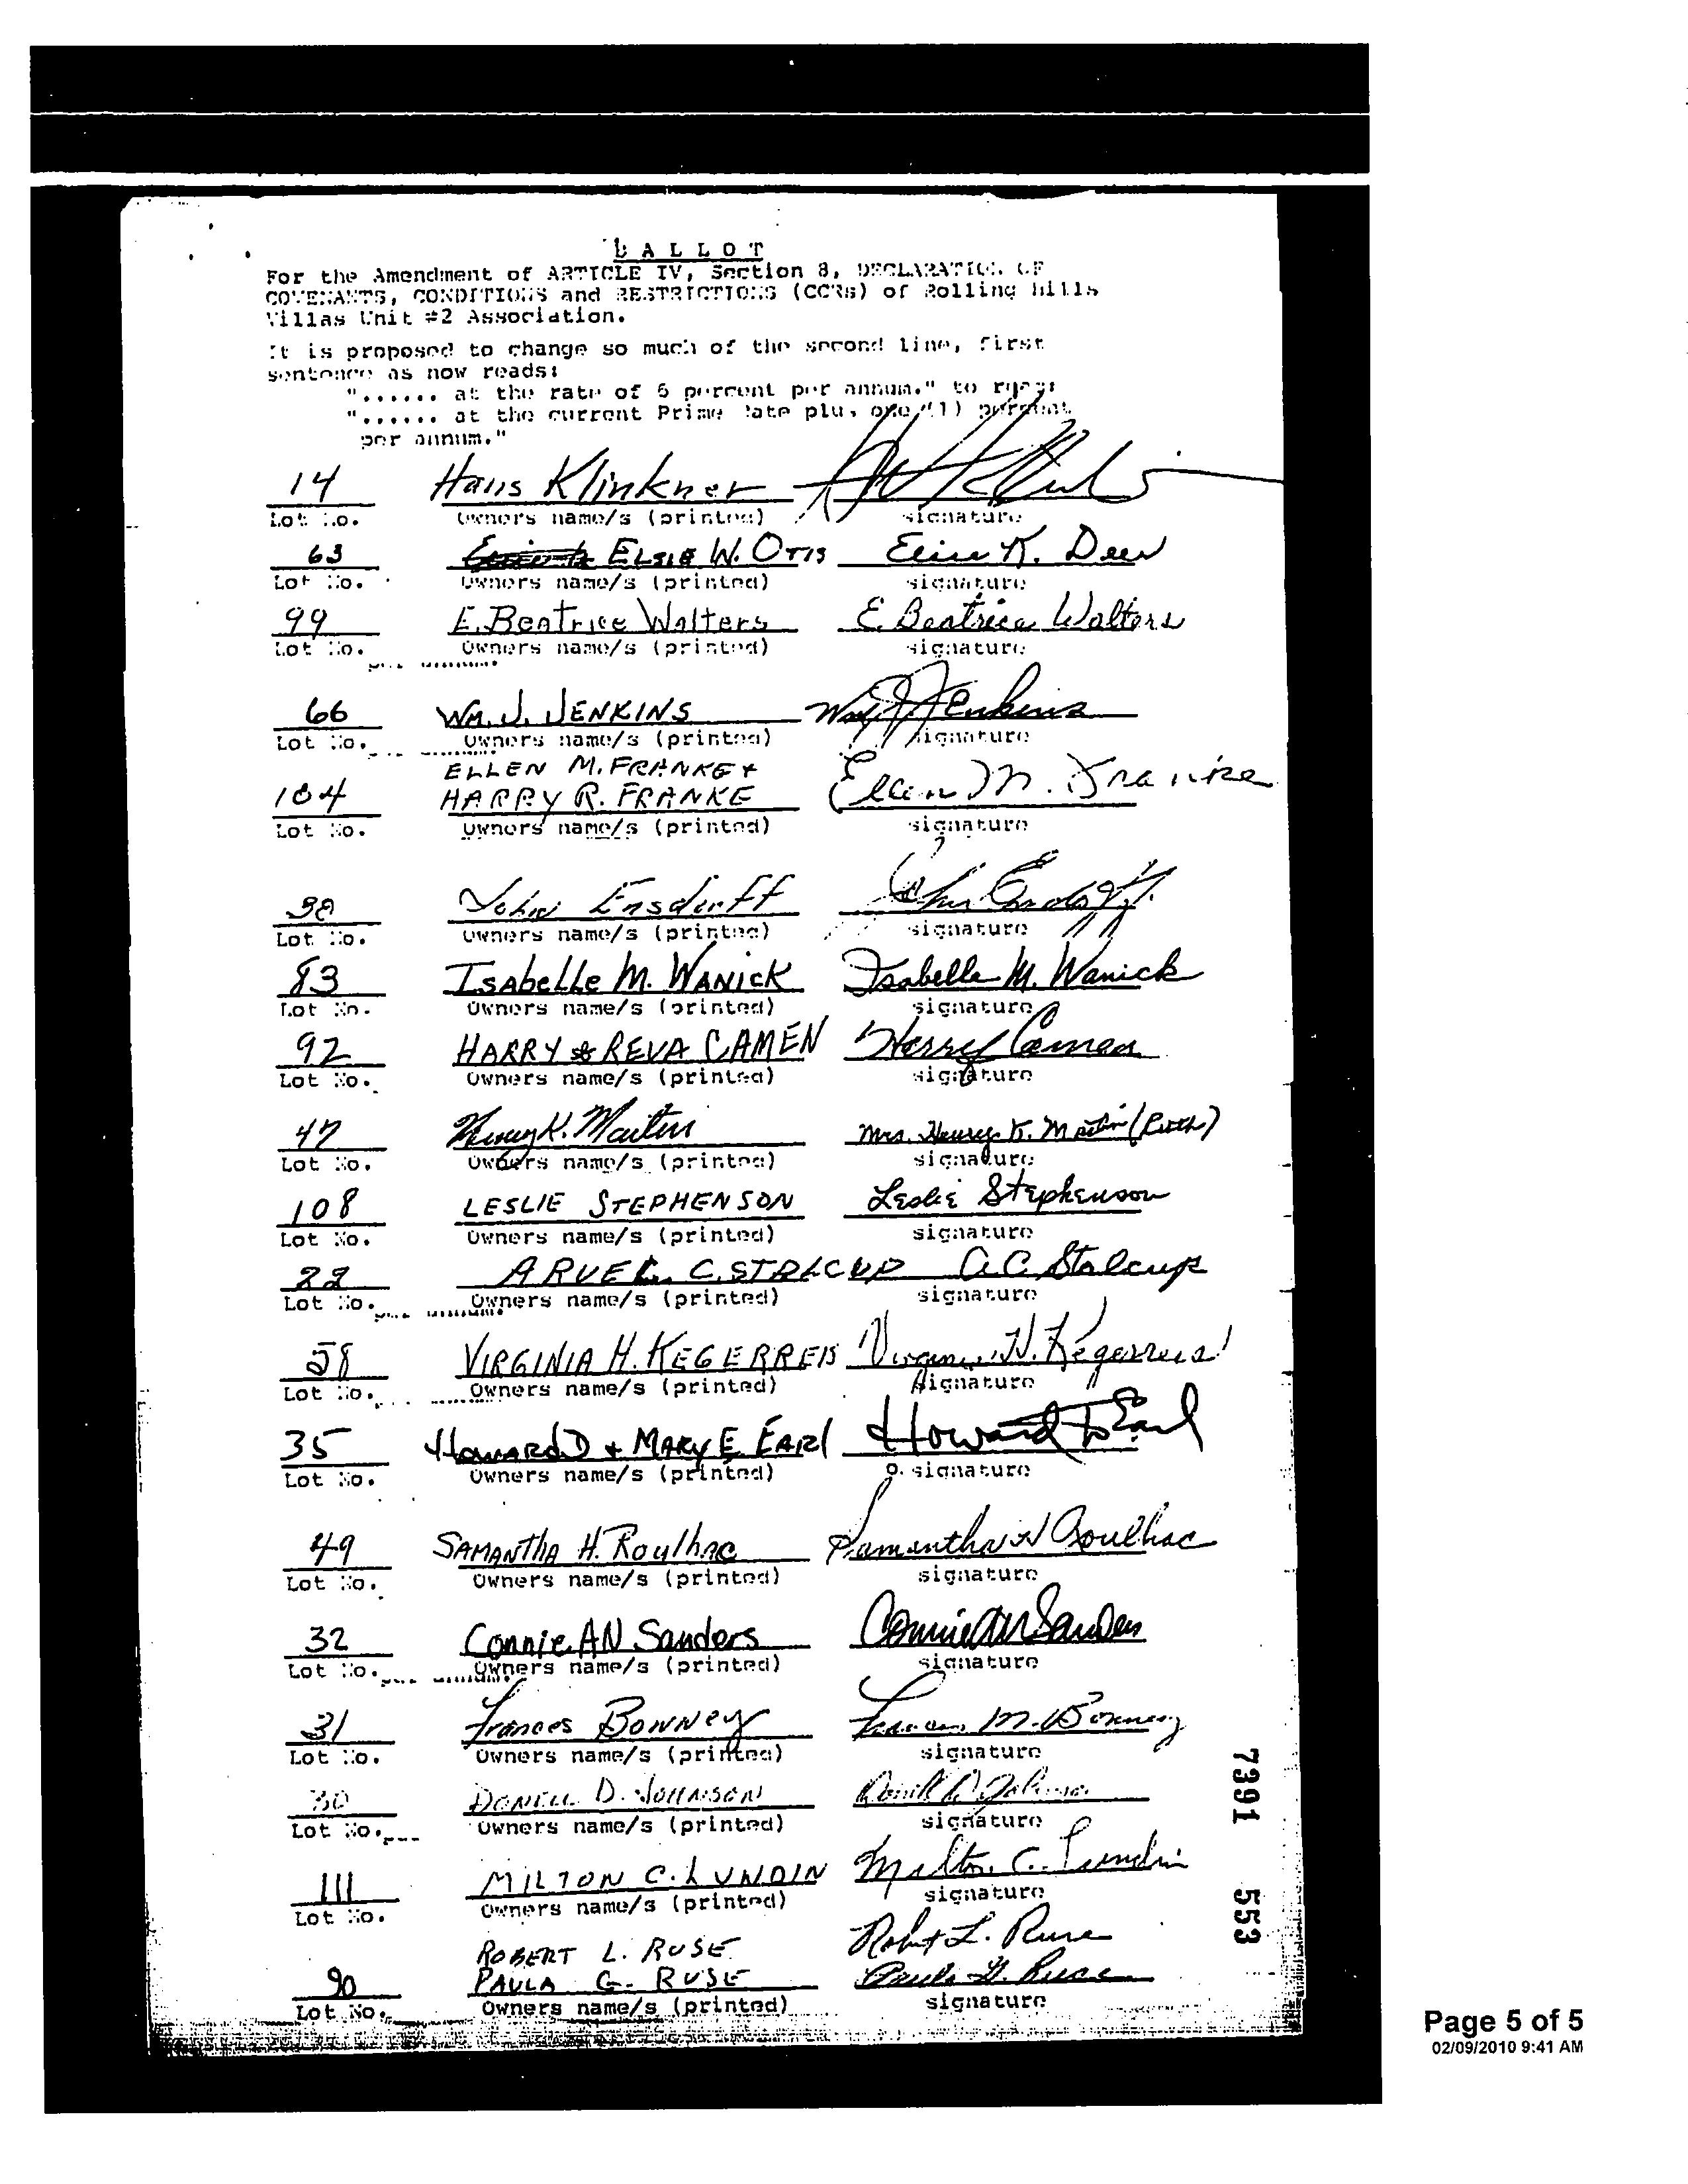 BALLOT
For the Amendment of ARTICLE IV, Section 8, DECLARATION OF
COVENANTS, CONDITIONS and RESTRICTIONS (CCRs) of Rolling Hills
Villas Unit #2 Association.
It is proposed to change so much of the second line, first
sentence as now reads:
"...... at the rate of 6 percent per annum." to read:
"...... at the current Prime Rate plus one (1) percent
per annum."
14 Hans Klinkner
Lot No. Owners name/s (printed) signature
63 ELSIE W. OTIS
Lot No. Owners name/s (printed) signature
99 E. Beatrice Walters E. Beatrice Walters
Lot No. Owners name/s (printed) signature
66 WM. J. JENKINS Wm J Jenkins
Lot No. Owners name/s (printed) signature
ELLEN M. FRANKE +
104 HARRY R. FRANKE Ellen M. Franke
Lot No. Owners name/s (printed) signature
John Ensdorff John Ensdorff
Lot No. Owners name/s (printed) signature
83 Isabelle M. WANICK Isabelle M. Wanick
Lot No. Owners name/s (printed) signature
92 HARRY & REVA CAMEN Harry Camen
Lot No. Owners name/s (printed) signature
47 Henry K. Martin Mrs. Henry K. Martin (Ruth)
Lot No. Owners name/s (printed) signature
108 LESLIE STEPHENSON Leslie Stephenson
Lot No. Owners name/s (printed) signature
22 ARVEL C. STALCUP A.C. Stalcup
Lot No. Owners name/s (printed) signature
58 VIRGINIA H. KEGERREIS Virginia H. Kegerreis
Lot No. Owners name/s (printed) signature
35 Howard D + MARY E. EARl Howard D Earl
Lot No. Owners name/s (printed) signature
49 SAMANTHA H. Roulhac Samantha H Roulhac
Lot No. Owners name/s (printed) signature
32 Connie AN Sanders Connie AN Sanders
Lot No. Owners name/s (printed) signature
31 Frances Bonney Frances M. Bonney
Lot No. Owners name/s (printed) signature
30 DONELL D. JOHNSON Donell D. Johnson
Lot No. Owners name/s (printed) signature
111 MILTON C. LUNDIN Milton C. Lundin
Lot No. Owners name/s (printed) signature
ROBERT L. RUSE Robert L. Ruse
90 PAULA G. RUSE Paula G. Ruse
Lot No. Owners name/s (printed) signature
7391 553
Page 5 of 5
02/09/2010 9:41 AM